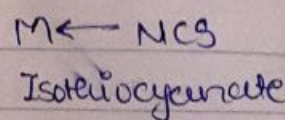 M ← NCS
Isothiocyanate